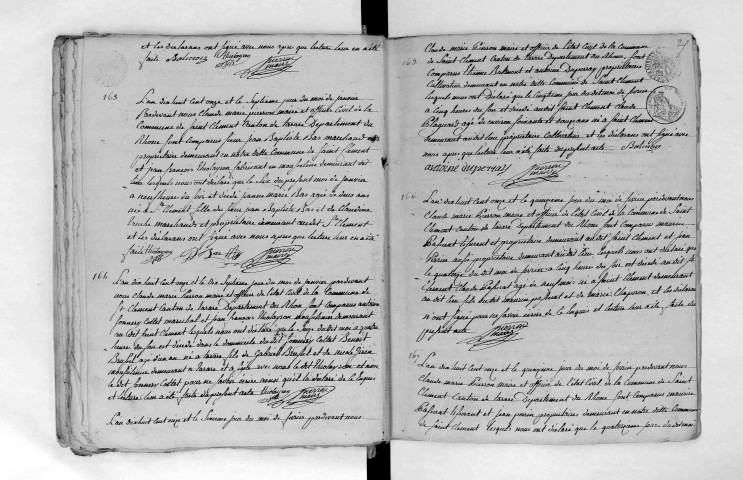 et les déclarans ont signé avec nous après que lecture leur en a été
faite
163
L'an dix huit cent onze et le Septième jour du moi de janvier
Pardevant nous Claude marie pierron maire et officier de l'état Civil de la
Commune de Saint Clement Canton de tarare Département du
Rhone sont Comparus Sieur jean Baptiste Bas marchand
propriétaire demeurant en notre ditte Commune de Saint Clement
et jean françois Tholeyron fabricant en mousseline demeurant dit
lieu lesquels nous ont déclaré que le Six du present moi de janvier
a neuf heure du soir est décédé janne marie Bas agé de deux ans
né a St Clement fille de Sieur jean Baptiste Bas et de Claudine
marchands et propriétaire demeurant audit St Clement
et les déclarans ont signé avec nous après que lecture leur en a été
faite Tholeyron
164
L'an dix huit cent onze et le dix Septieme jour du moi de janvier pardevant
nous Claude marie pierron maire et officier de l'état Civil de la Commune de
St Clement Canton de tarare Département du Rhone sont Comparus antoine
Sonnery Collet marechal et jean francois Tholeyron mousselinier demeurant
au dit Saint Clement lesquels nous ont déclaré que le Seize du dit moi a quatre
heure du soir est décédé dans le domicile du dit Sonnery Collet Benoit
agé d'un an né a tarare fils de Gabriel et de
mousselinier demeurant a tarare et a signé avec nous le dit Tholeyron et non
le dit Sonnery Collet pour ne savoir écrire
et lecture leur a été faite du present acte Tholeyron
L'an dix huit cent onze et le Septieme jour du moi de fevrier pardevant nous
165
Claude marie Pierron maire et officier de l'état Civil de la Commune
de Saint Clement Canton de tarare Département du Rhone sont
Comparus Etienne et antoine Duperray propriétaires
Cultivateur demeurant en notre ditte commune de Saint Clement
lesquels nous ont déclaré que le Cinquieme jour du dit moi de fevrier
a Cinq heures du soir est décédé audit Saint Clement Claude
agé de environ soixante et ans né a Saint Clement
demeurant audit lieu propriétaire Cultivateur et les déclarans ont signé avec
nous après que lecture leur a été faite du present acte
antoine duperray
166
L'an dix huit cent onze et le quinzieme jour du moi de fevrier pardevant nous
Claude marie Pierron maire et officier de l'état Civil de la Commune de Saint
Clement Canton de tarare Département du Rhone sont Comparus maurice
tisserant et propriétaire demeurant audit Saint Clement et jean
Perrin aussi propriétaire demeurant audit lieu lesquels nous ont déclaré que
le quatorze du dit moi de fevrier a Cinq heure du soir est décédé audit St
Clement Claude agé de né a Saint Clement demeurant
au dit lieu fils du dit maurice et de marie et les declarans
n'ont signé pour ne savoir écrire de ce requis et lecture leur a été faite du
present acte
167
L'an dix huit cent onze et le quinzieme jour du moi de fevrier pardevant nous
Claude marie Pierron maire et officier de l'état Civil de la Commune de Saint
Clement Canton de tarare Département du Rhone sont Comparus maurice
tisserant et jean perrin propriétaires demeurant en notre ditte Commune
de Saint Clement lesquels nous ont déclaré que le quatorzieme jour du dit moi